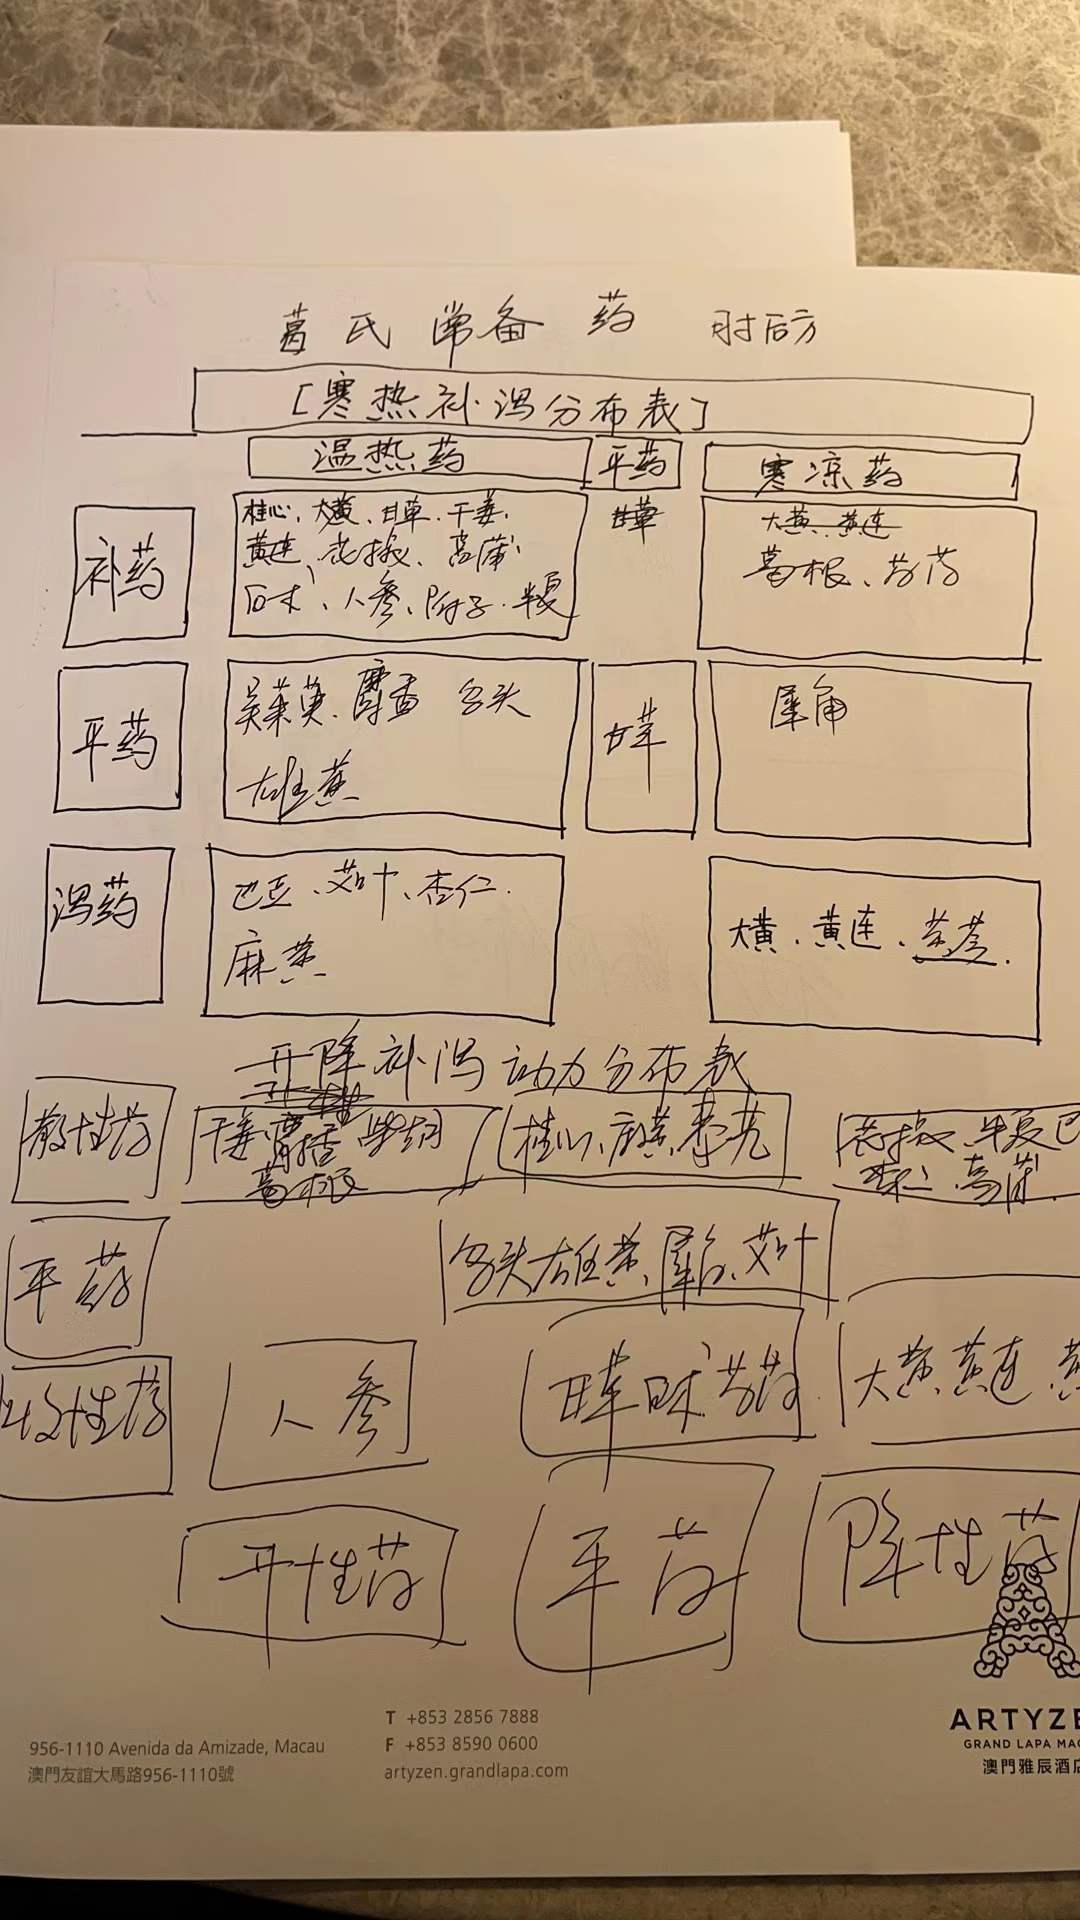 葛氏常备药 肘后方
[寒热补泻分布表]
温热药 平药 寒凉药
补药
桂心、大黄、甘草、干姜、
黄连、花椒、菖蒲、
白术、人参、附子、半夏
甘草
大黄、黄连
葛根、芍药
平药
吴茱萸、麝香 乌头
雄黄
甘草
犀角
泻药
巴豆、艾叶、杏仁、
麻黄
大黄、黄连、
升降补泻动力分布表
散性药
干姜 柴胡
葛根
桂心、麻黄
花椒、半夏 巴
菖蒲
平药
乌头 雄黄、犀角、艾叶
收性药
人参
甘草 白术 芍药
大黄、黄连、黄
升性药 平药 降性药
T +853 2856 7888
956-1110 Avenida da Amizade, Macau F +853 8590 0600
澳門友誼大馬路956-1110號 artyzen.grandlapa.com
ARTYZE
GRAND LAPA MAC
澳門雅辰酒店